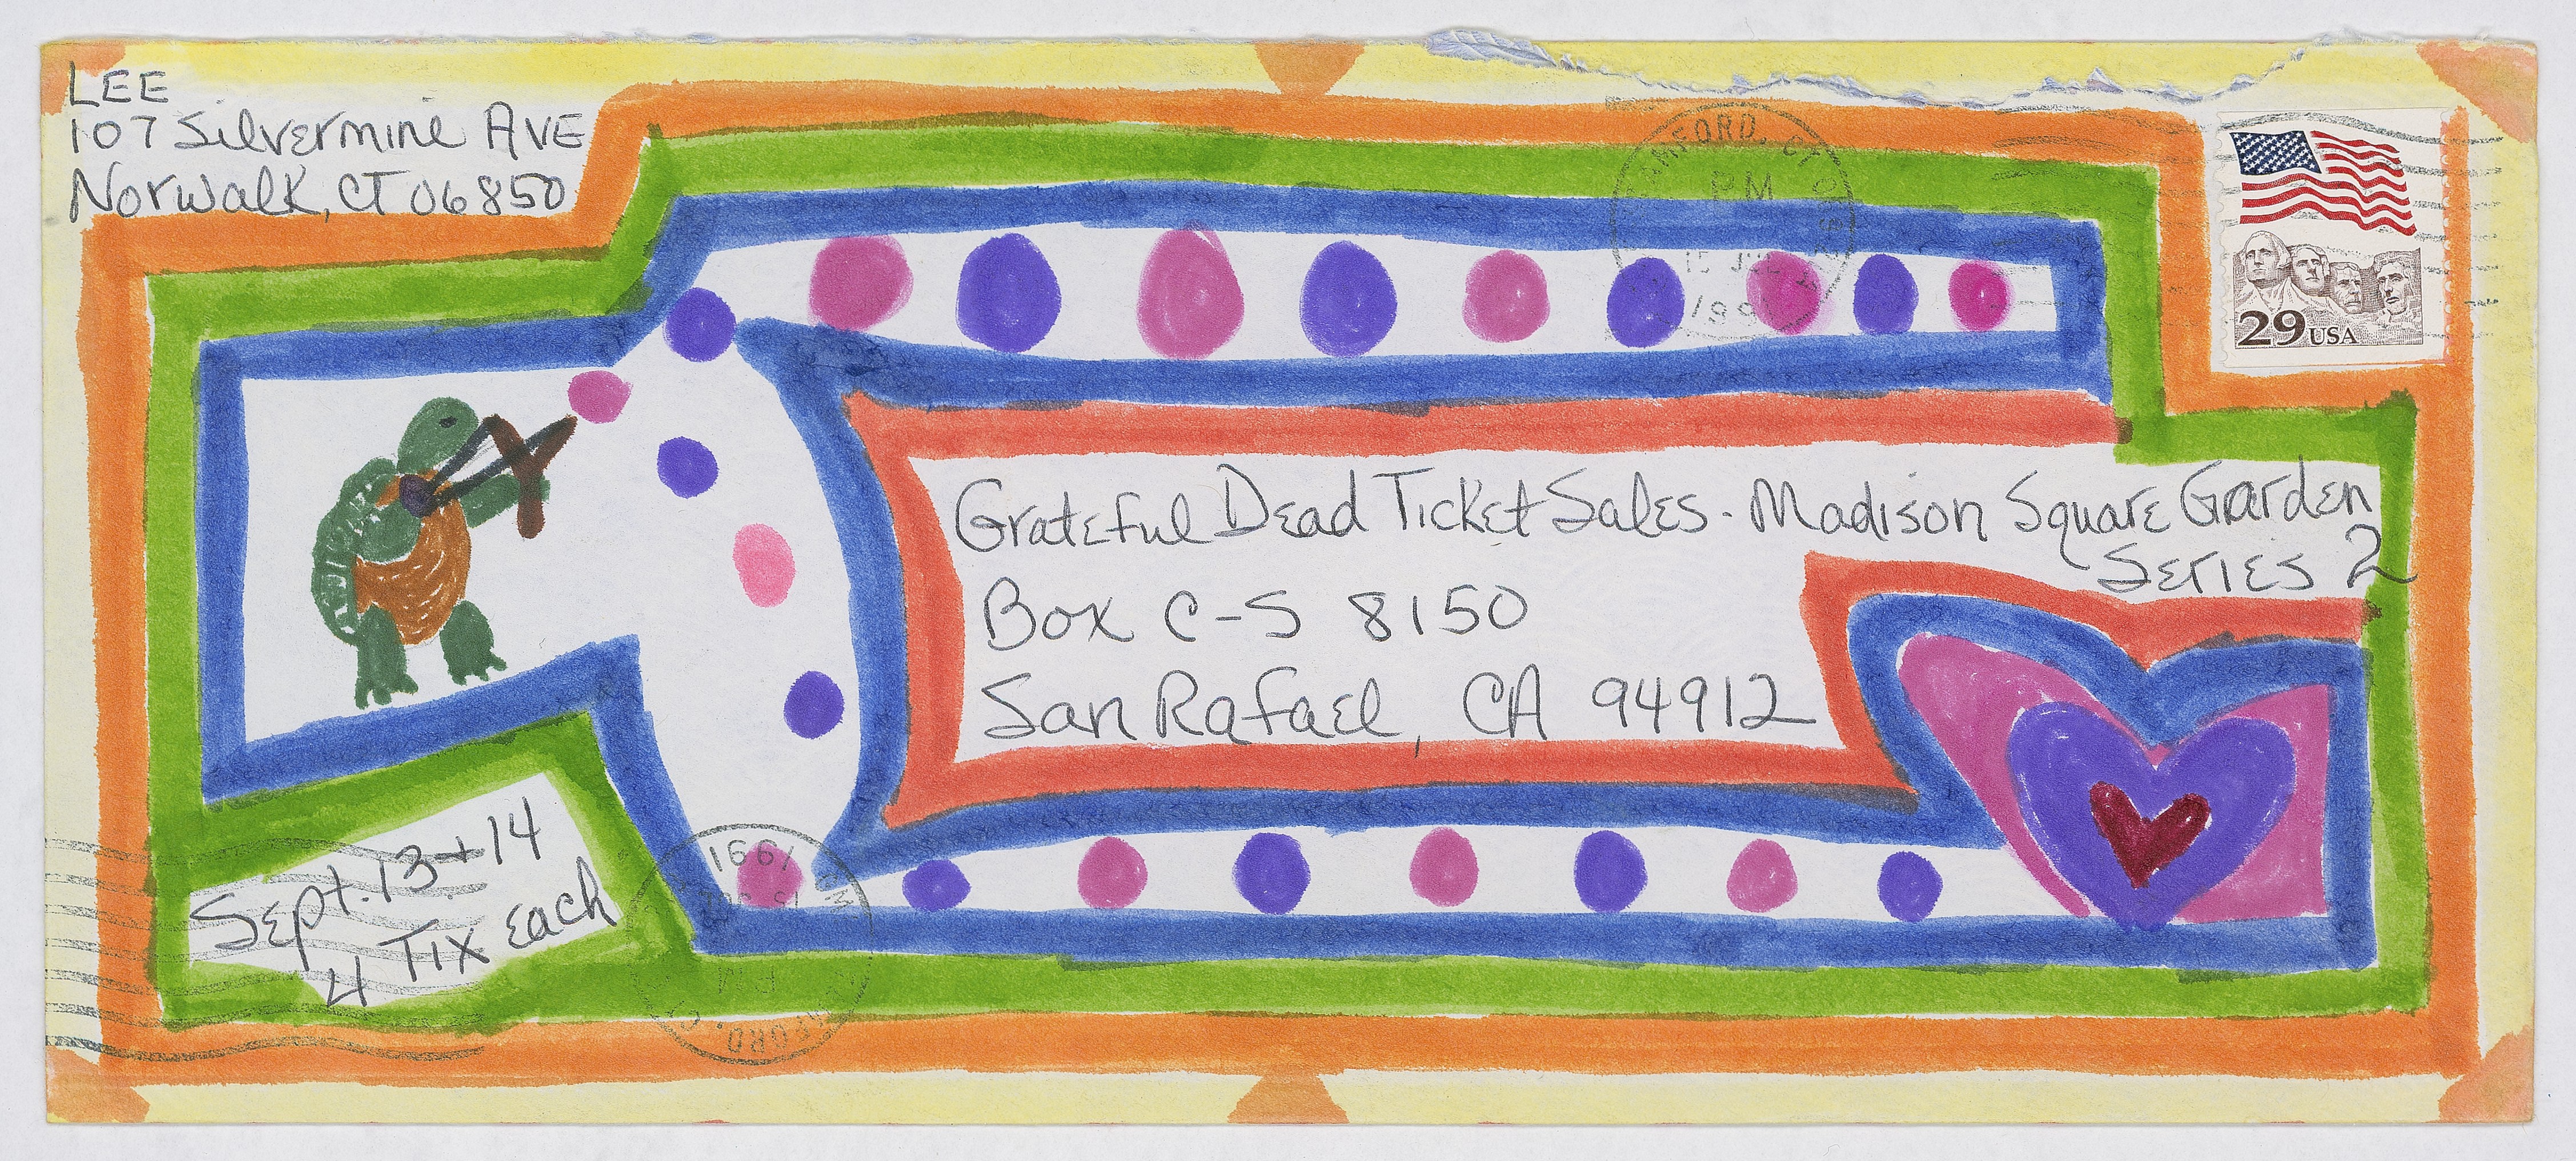 LEE
107 Silvermine AVE
Norwalk, CT 06850
29 USA
PM
15 JUL
1991
Grateful Dead Ticket Sales - Madison Square Garden
Series 2
Box C-S 8150
San Rafael, CA 94912
Sept. 13 + 14
4 Tix each
1991
PM